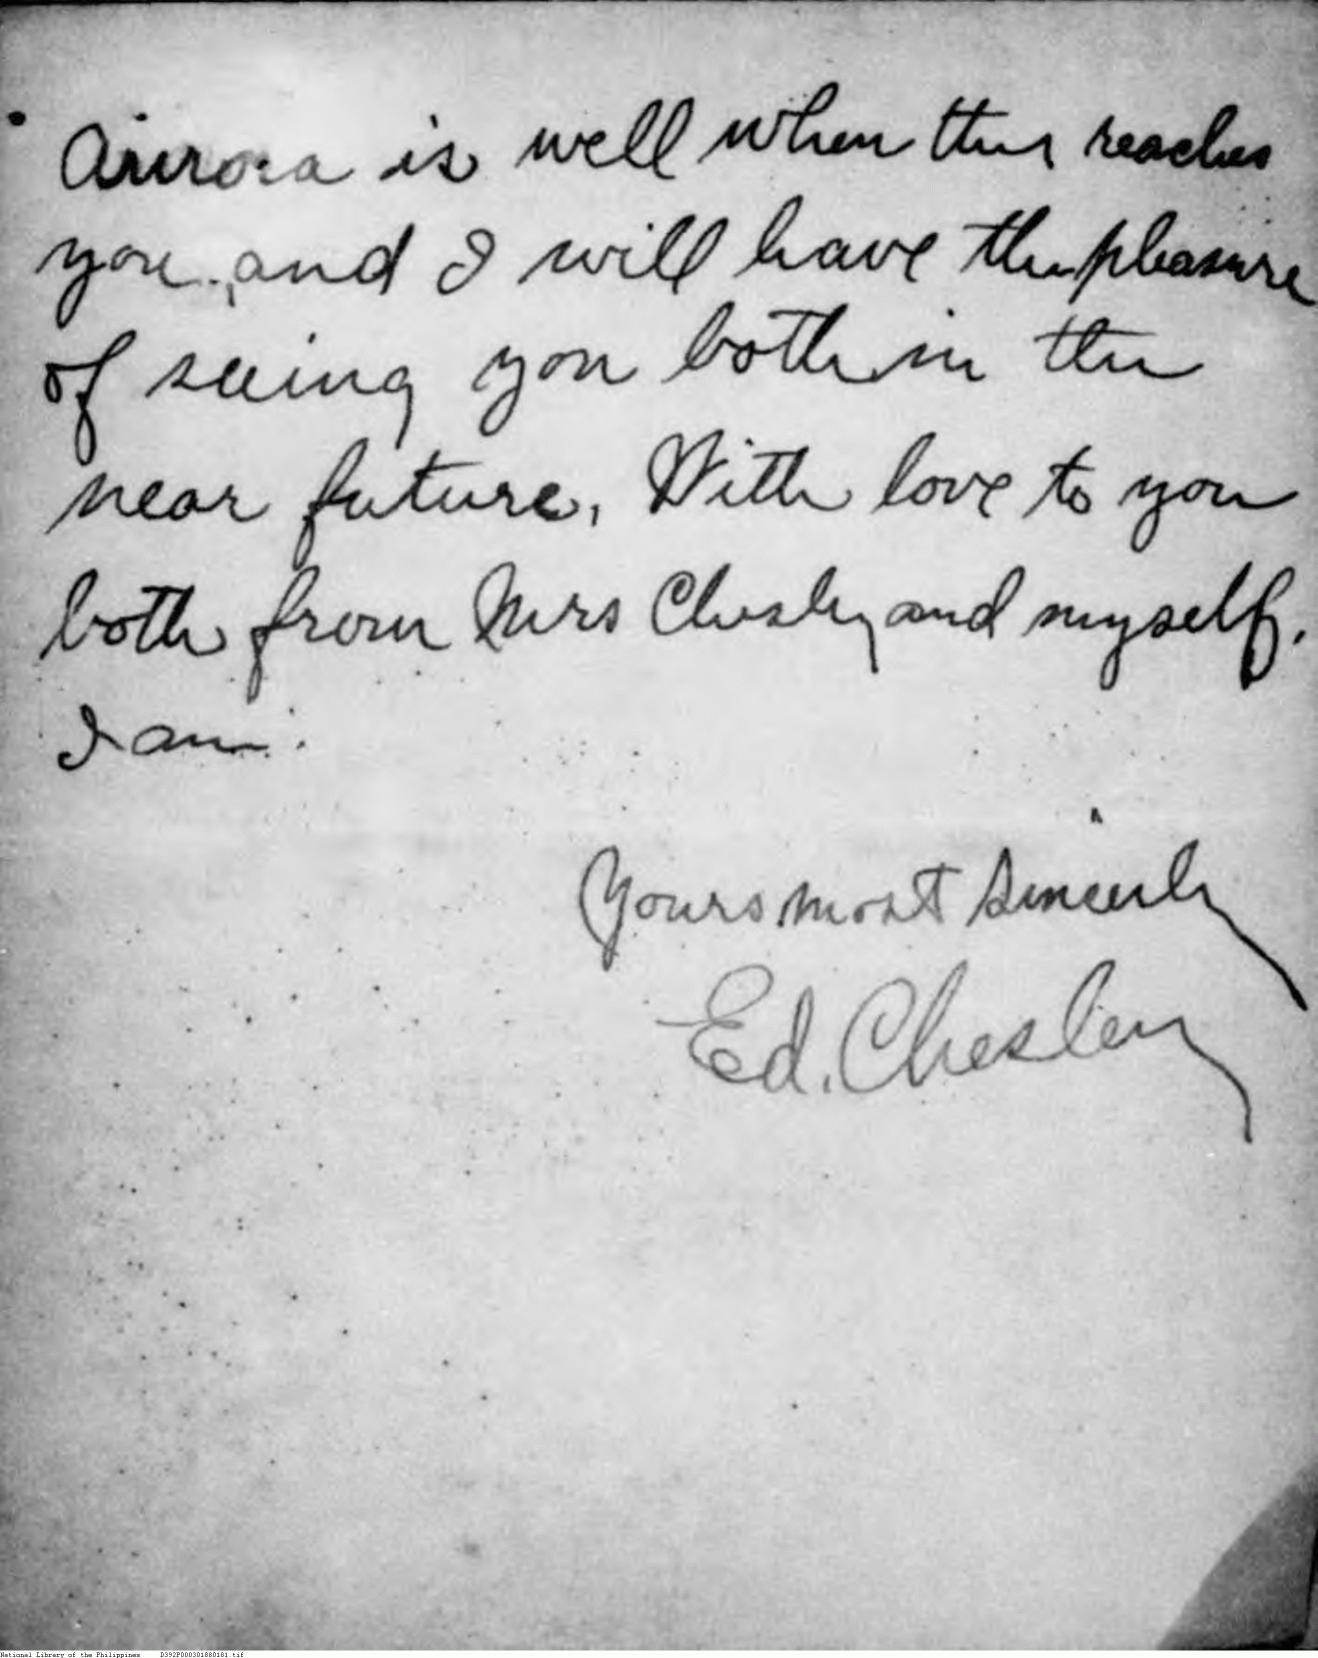 Aurora is well when this reaches
you, and I will have the pleasure
of seeing you both in the
near future. With love to you
both from Mrs Chesley and myself.
I am.
Yours most sincerely
Ed. Chesley
National Library of the Philippines D392P000301880181.tif